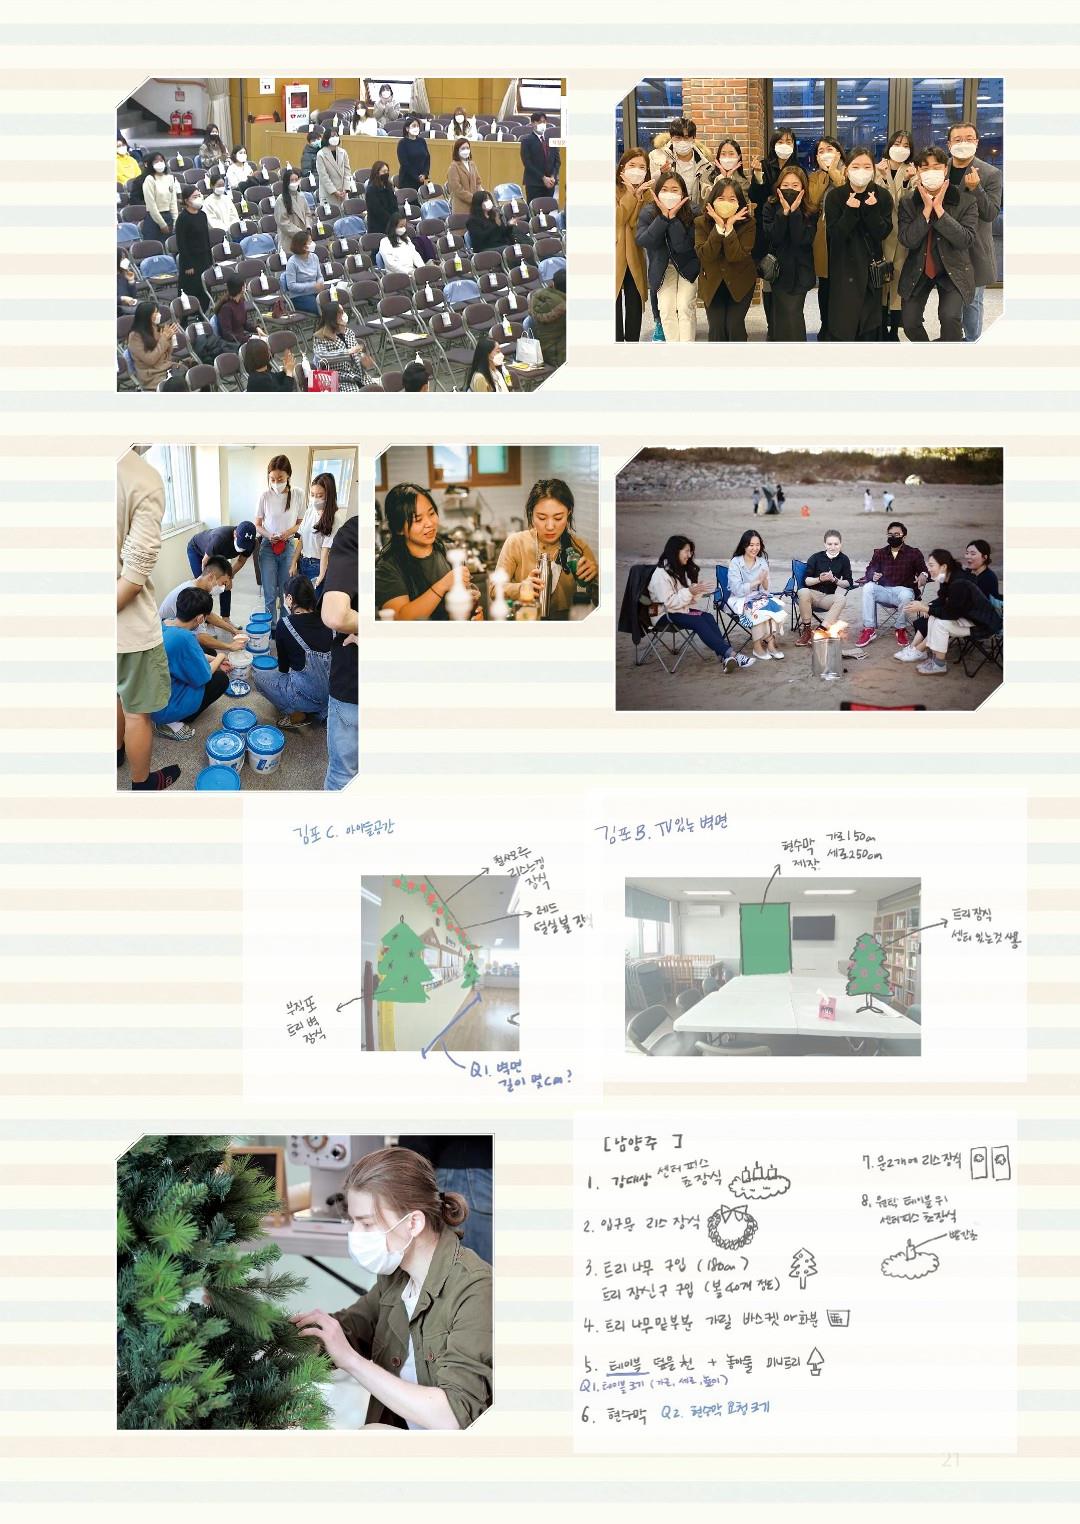 김포 C. 아이들공간
리스느낌
장식
레드
털실볼 장식
부직포
트리 벽
장식
Q1. 벽면
길이 몇cm?
김포 B. TV있는 벽면
현수막
제작.
가로150cm
세로250cm
트리장식
센터 있는것 사용
[남양주]
1. 강대상 센터피스
초장식
2. 입구문 리스 장식
3. 트리 나무 구입 (180cm)
트리 장신구 구입 (볼 40개 정도)
4. 트리 나무 밑부분 가릴 바스켓 or 화분
5. 테이블 덮을 천 + 놓아둘 미니트리
Q1. 테이블 크기 (가로, 세로, 높이)
6. 현수막 Q2. 현수막 요청 크기
7. 문2개에 리스장식
8. 원탁 테이블 위
센터피스 초장식
빨간초
21